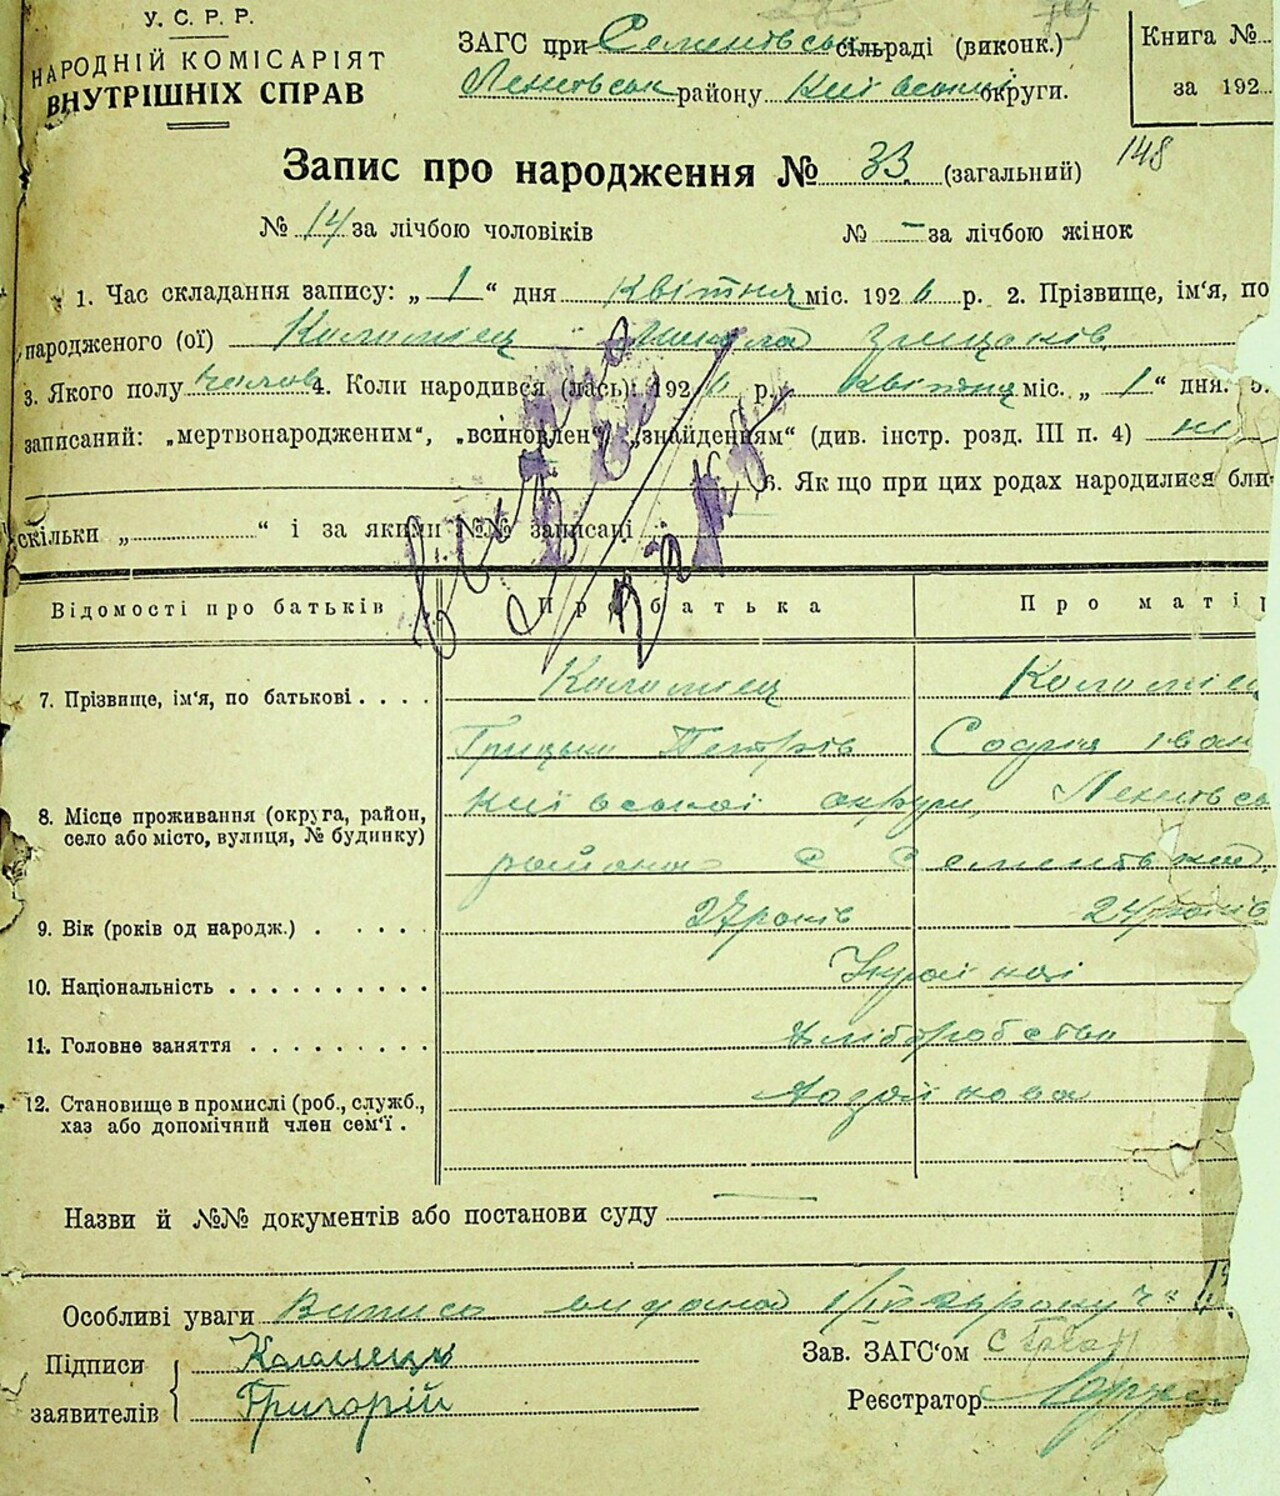 У. С. Р. Р.
НАРОДНІЙ КОМІСАРІЯТ
ВНУТРІШНІХ СПРАВ
ЗАГС при сільраді (виконк.)
району Київської округи.
Книга №
за 192
148
Запис про народження № 33 (загальний)
№ 14 за лічбою чоловіків № - за лічбою жінок
1. Час складання запису: „ 1 “ дня квітня міс. 1926 р. 2. Прізвище, ім'я, по
народженого (ої) Коломієц Микола Грицьків
3. Якого полу чолов 4. Коли народився (лась): 1926 р. квітня міс. „ 1 “ дня. 5.
записаний: „мертвонародженим“, „всиновлен“, „знайденням“ (див. інстр. розд. III п. 4) ні
6. Як що при цих родах народилися бли-
скільки „ “ і за якими №№ записані
Відомості про батьків Про батька Про матір
7. Прізвище, ім'я, по батькові Коломієц Коломієц
Грицько Петрів Софія Іван
8. Місце проживання (округа, район, село або місто, вулиця, № будинку) Київської округи,
району с
9. Вік (років од народж.) 27 років 24 років
10. Національність Українці
11. Головне заняття Хліборобство
12. Становище в промислі (роб., служб., хаз або допомічний член сем'ї .
Назви й №№ документів або постанови суду
Особливі уваги Випись видана
Підписи Коломієць Зав. ЗАГС'ом
заявителів Григорій Реєстратор